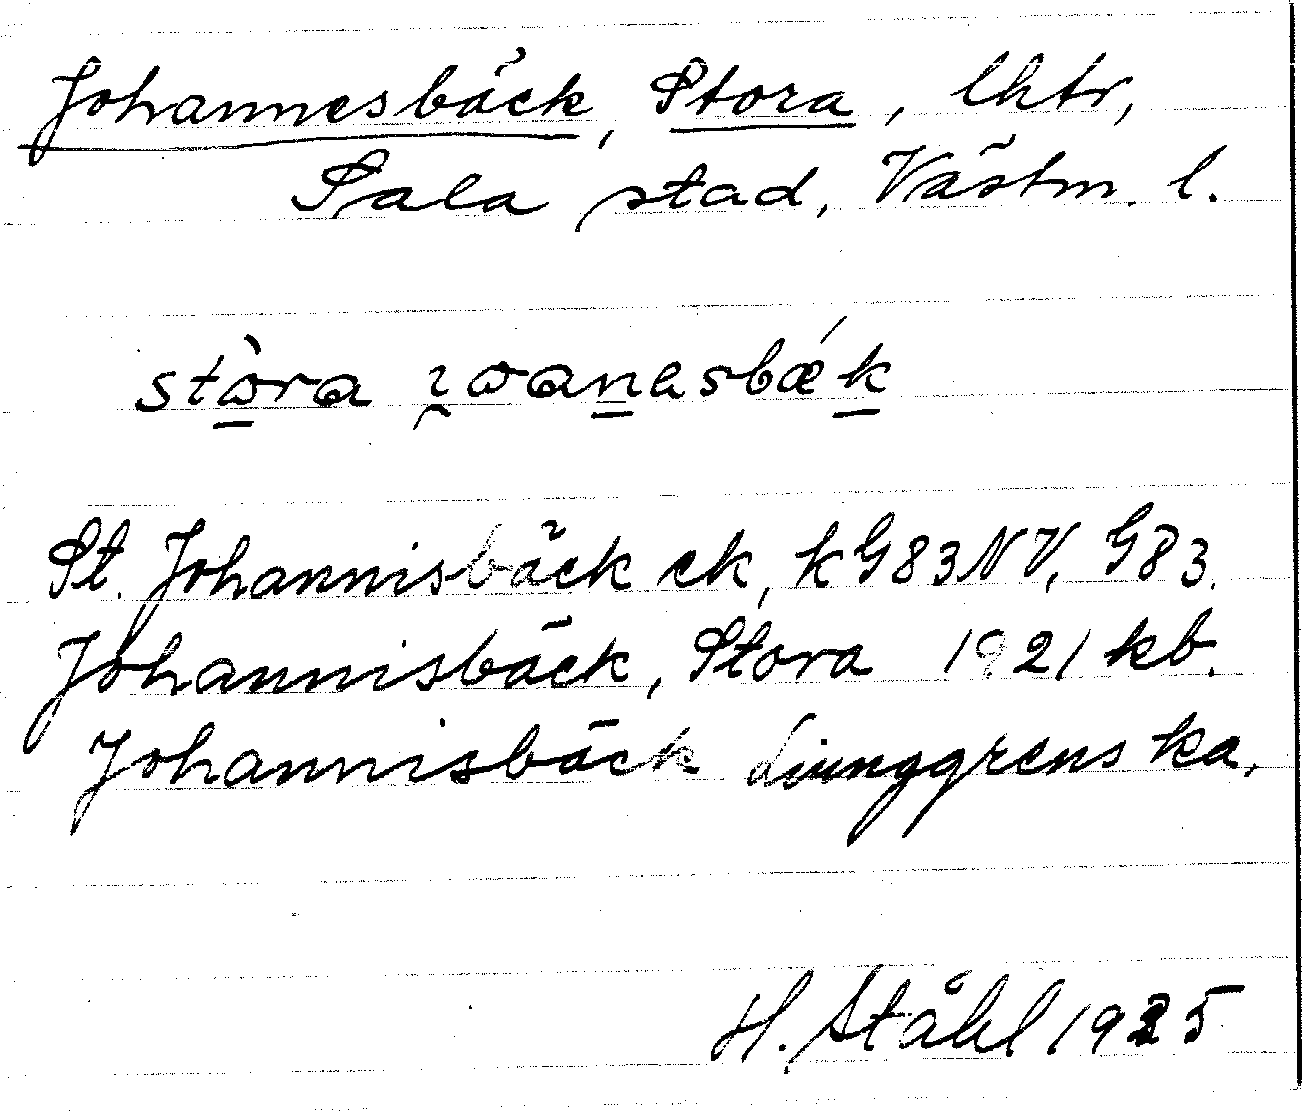 Johannesbäck, Stora, lhtr,
Sala stad, Västm. l.
stòra ɩ̯oanesbǽk
St. Johannisbäck ek, kG83NV, G83.
Johannisbäck, Stora 1921 kb.
Johannisbäck Ljunggrens ka.
H. Ståhl 1925